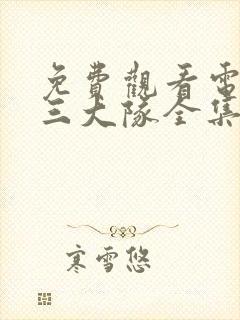 免費觀看電
三大隊全集
寒雪悠